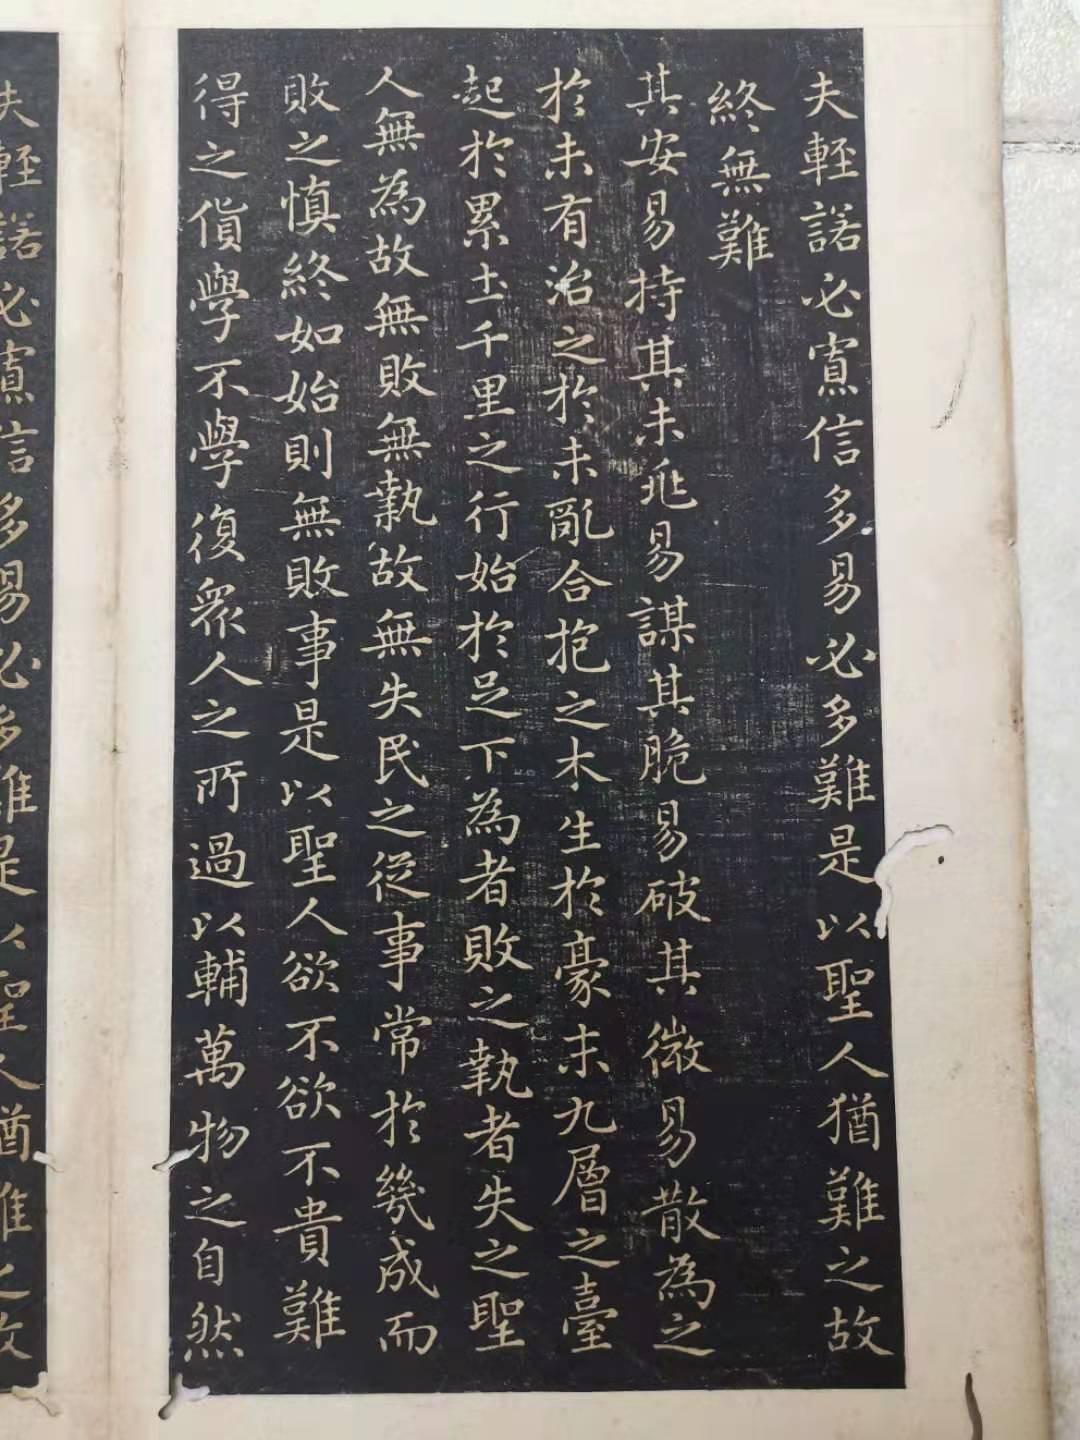 夫輕諾必寡信多易必多難是以聖人猶難之故
終無難
其安易持其未兆易謀其脆易破其微易散為之
於未有治之於未亂合抱之木生於豪末九層之臺
起於累土千里之行始於足下為者敗之執者失之聖
人無為故無敗無執故無失民之從事常於幾成而
敗之慎終如始則無敗事是以聖人欲不欲不貴難
得之貨學不學復眾人之所過以輔萬物之自然
夫輕諾必寡信多易必多難是以聖人猶難之故